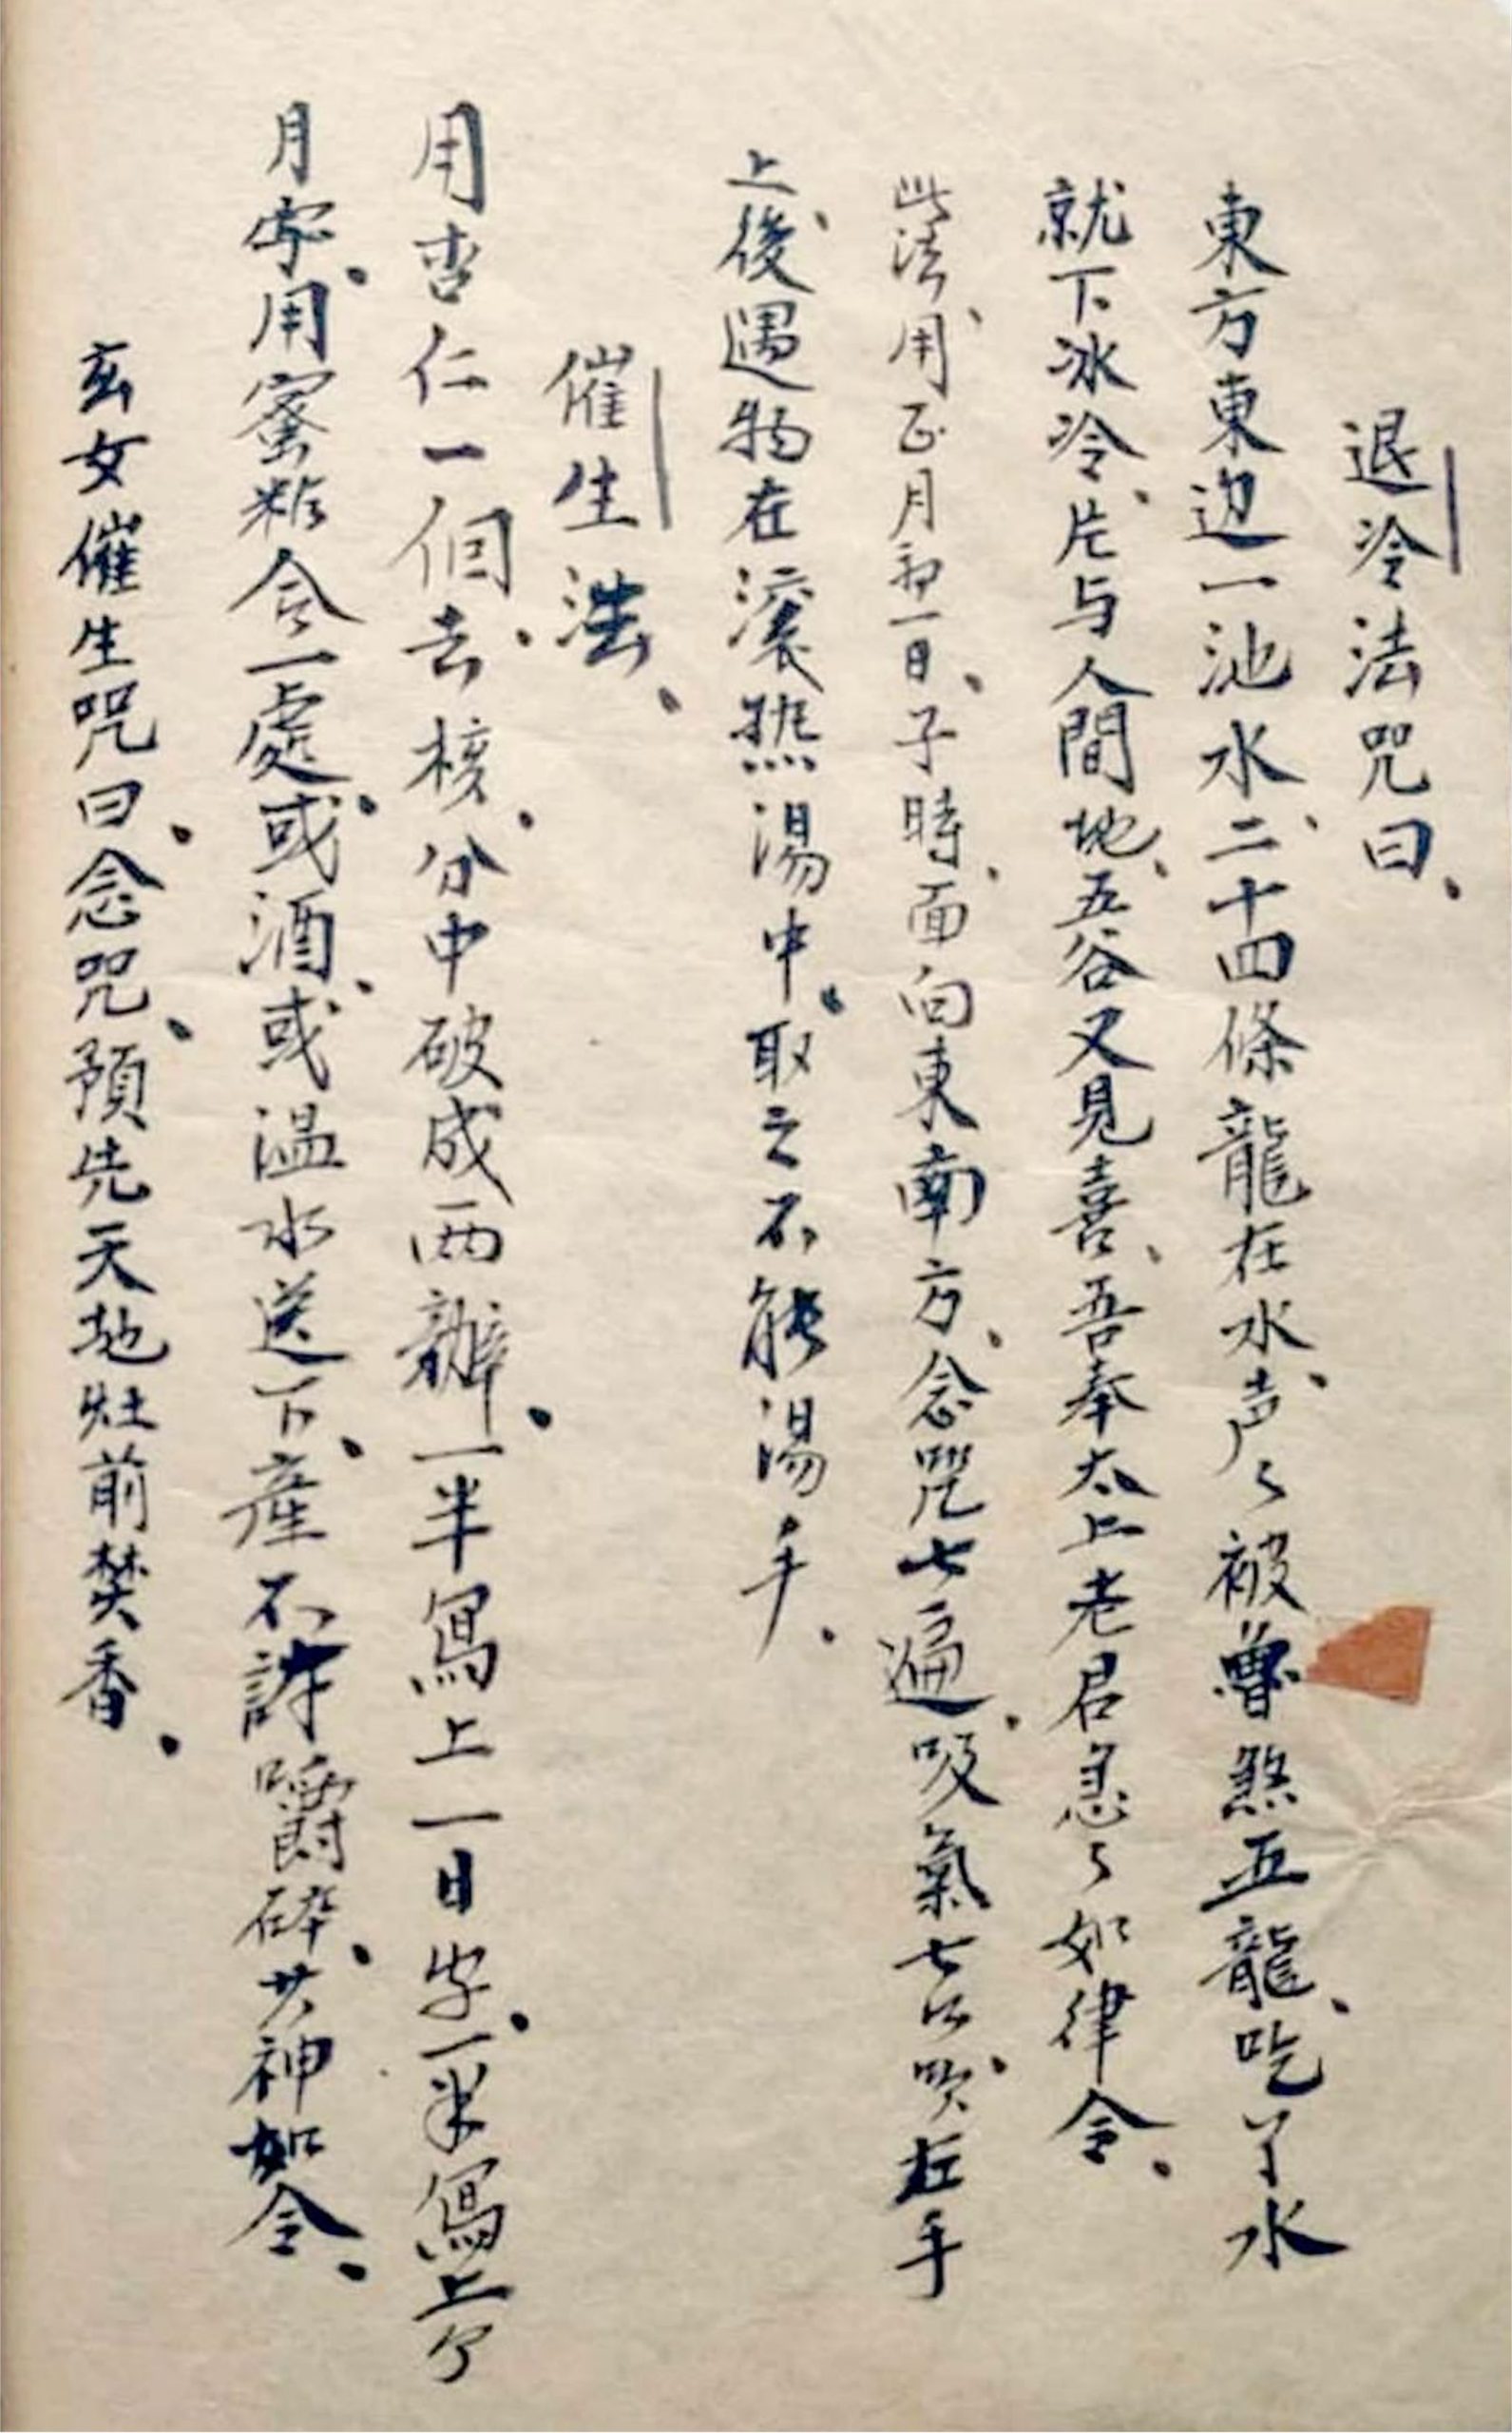 退冷法咒曰、
東方東边一池水、二十四條龍在水、声々被魯煞五龍、吃了水
就下冰冷、片与人間地、五谷又見喜、吾奉太上老君急々如律令、
此法、用正月初一日、子時、面向東南方、念咒七遍、吸氣七口、吹在手
上、後遇物在滚热湯中、取之不能湯手、
催生法、
用杏仁一個、去核、分中破成两瓣、一半寫上一日字、一半寫上个
月字、用蜜粘合一處、或酒、或温水送下、産不許嚼碎、共神如令、
玄女催生咒曰、念咒、預先天地灶前焚香、